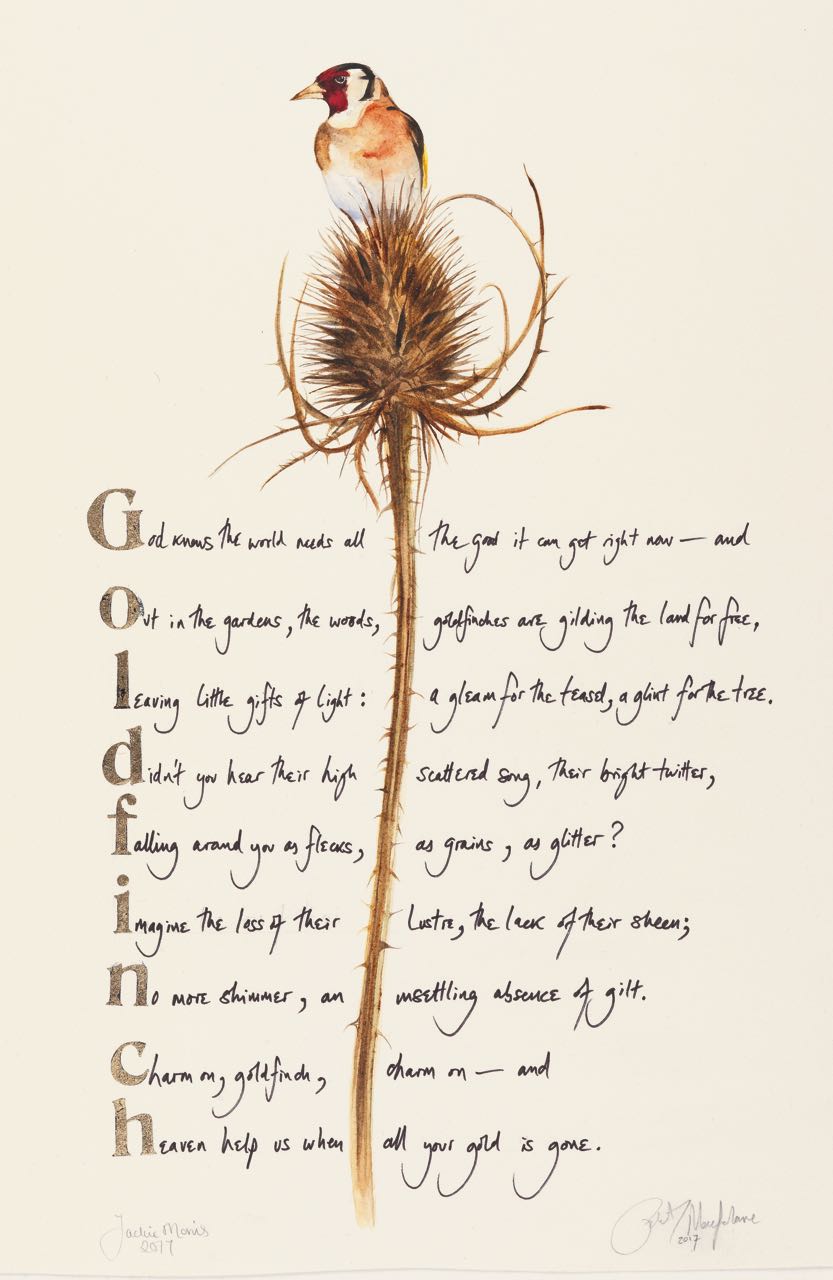 God knows the world needs all the good it can get right now — and
out in the gardens, the woods, goldfinches are gilding the land for free,
leaving little gifts of light: a gleam for the teasel, a glint for the tree.
didn't you hear their high scattered song, their bright twitter,
falling around you as flecks, as grains, as glitter?
imagine the loss of their lustre, the lack of their sheen;
no more shimmer, an unsettling absence of gilt.
charm on, goldfinch, charm on — and
heaven help us when all your gold is gone.
Jackie Morris
2017
Robert Macfarlane
2017